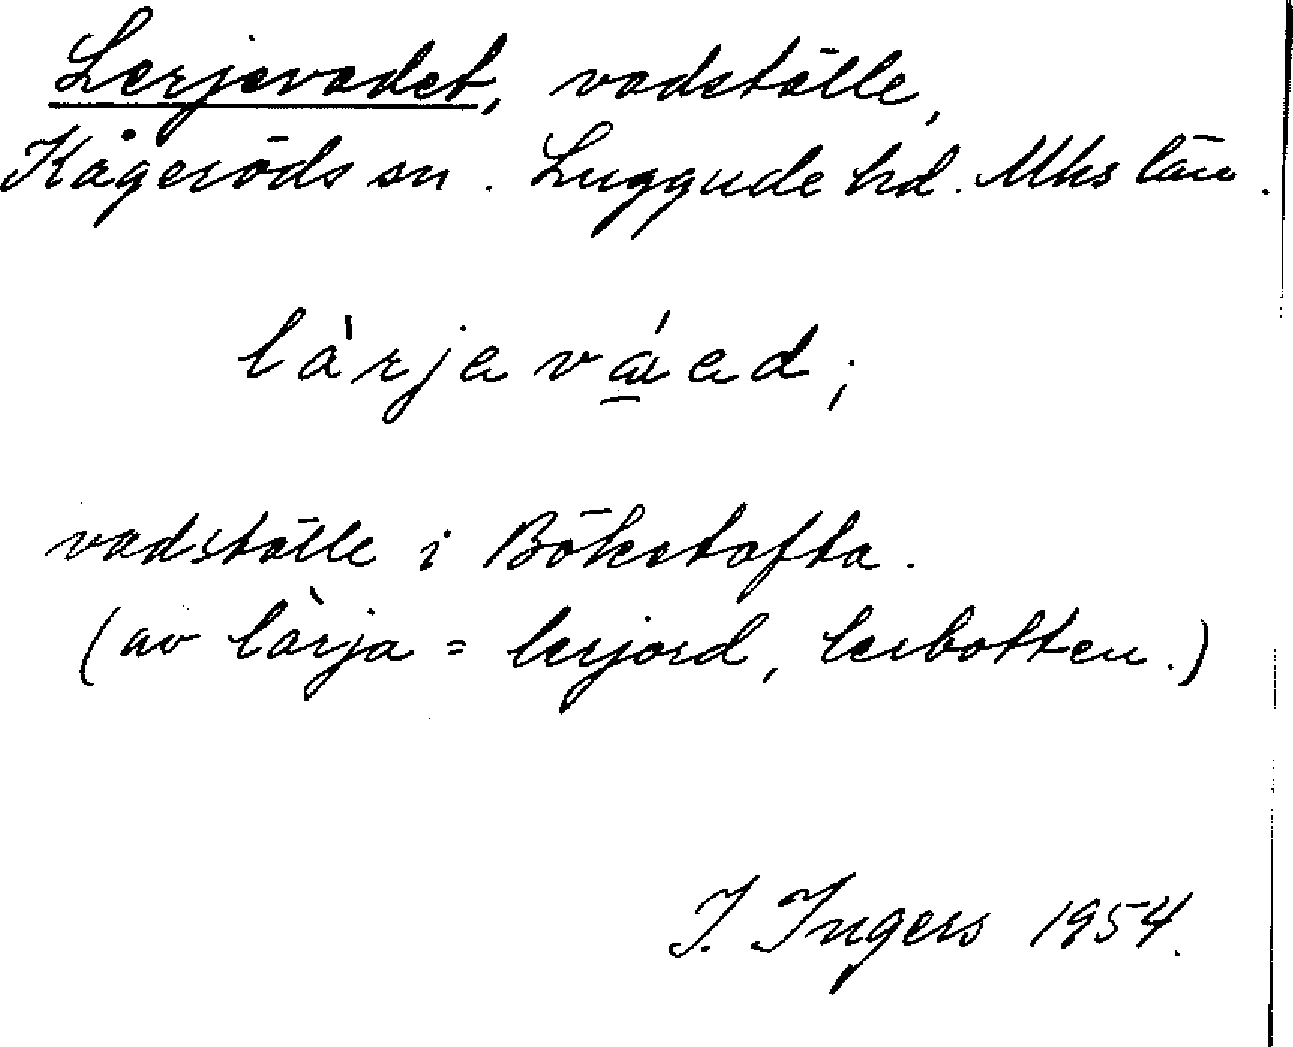 Lerjevadet, vadställe,
Kågeröds sn. Luggude hd. Mhs län.
làrjavá̱ad;
vadställe i Böketofta.
(av làrja = lerjord, lerbotten.)
I. Ingers 1954.